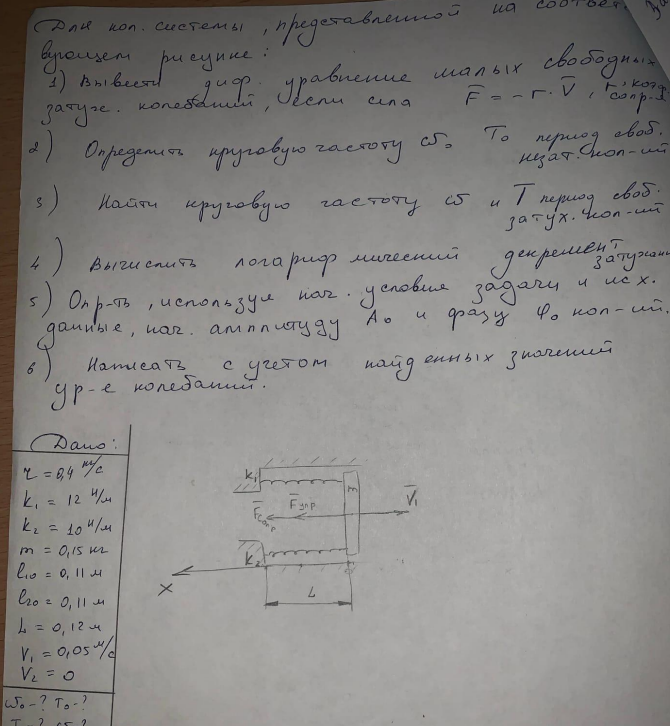 Для кол. системы, представленной на соответ.
вующем рисунке:
1) Вывести диф. уравнение малых свободных
затух. колебаний, если сила F̅ = -r·V̅, r, коэф. сопр-я
2) Определить круговую частоту ω₀ T₀ период своб. незат. кол-ий
3) Найти круговую частоту ω и T период своб. затух. кол-ий
4) Вычислить логарифмический декремент затухани
5) Опр-ть, используя нач. условия задачи и исх.
данные, нач. амплитуду A₀ и фазу φ₀ кол-ий.
6) Написать с учетом найденных значений
ур-е колебаний.
Дано:
r = 0,4 кг/с
k₁ = 12 Н/м
k₂ = 10 Н/м
m = 0,15 кг
l₁₀ = 0,11 м
l₂₀ = 0,11 м
L = 0,12 м
V₁ = 0,05 м/с
V₂ = 0
ω₀-? T₀-?
T-? ω-?
k₁
m
F̅сопр
F̅упр
V̅₁
k₂
X
L